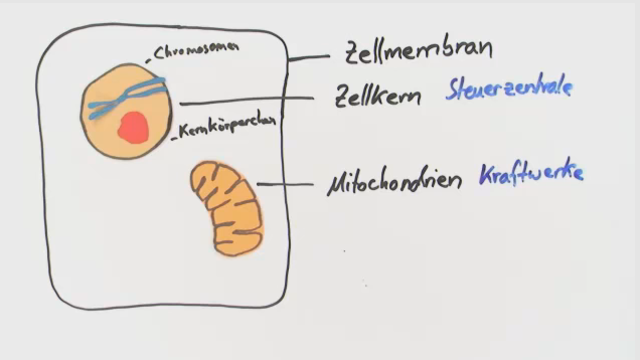 Chromosomen
Zellmembran
Zellkern Steuerzentrale
Kernkörperchen
Mitochondrien Kraftwerke